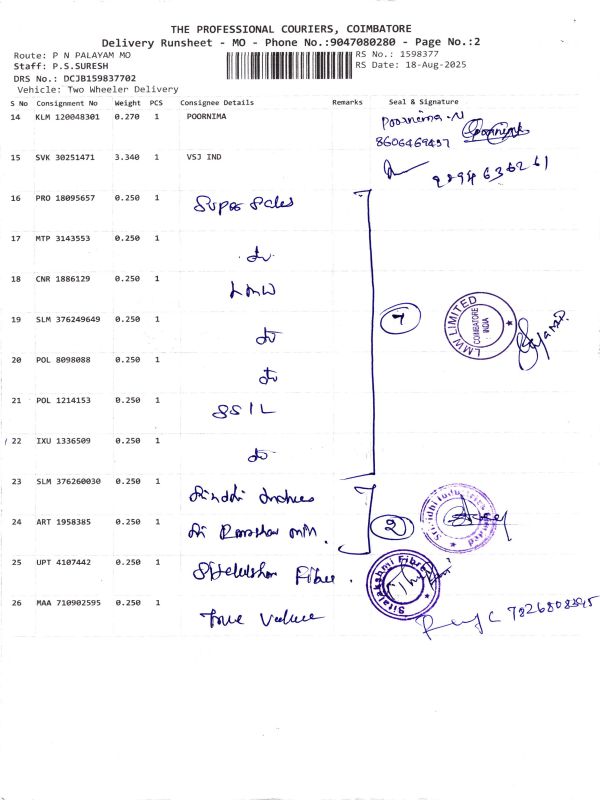 THE PROFESSIONAL COURIERS, COIMBATORE
Delivery Runsheet - MO - Phone No.:9047080280 - Page No.:2
Route: P N PALAYAM MO
RS No.: 1598377
Staff: P.S.SURESH
RS Date: 18-Aug-2025
DRS No.: DCJB159837702
Vehicle: Two Wheeler Delivery
S No Consignment No Weight PCS Consignee Details Remarks Seal & Signature
14 KLM 120048301 0.270 1 POORNIMA Poornima.N
8606469437
15 SVK 30251471 3.340 1 VSJ IND
16 PRO 18095657 0.250 1 Super Sales
17 MTP 3143553 0.250 1
18 CNR 1886129 0.250 1 LMW
19 SLM 376249649 0.250 1 7 LMW LIMITED COIMBATORE INDIA
20 POL 8098088 0.250 1
21 POL 1214153 0.250 1 SSIL
22 IXU 1336509 0.250 1
23 SLM 376260030 0.250 1
24 ART 1958385 0.250 1 2
25 UPT 4107442 0.250 1 Fibre. Sitalakshmi Fibre
26 MAA 710902595 0.250 1 True Value